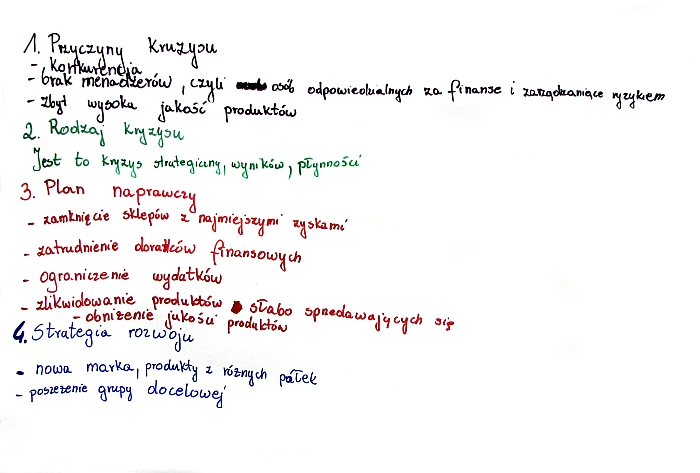 1. Przyczyny kryzysu
- konkurencja
- brak menadżerów, czyli osób odpowiedzialnych za finanse i zarządzaniące ryzykiem
- zbyt wysoka jakość produktów
2. Rodzaj kryzysu
Jest to kryzys strategiczny, wyników, płynności
3. Plan naprawczy
- zamknięcie sklepów z najmiejszymi zyskami
- zatrudnienie doradców finansowych
- ograniczenie wydatków
- zlikwidowanie produktów słabo sprzedawających się
- obniżenie jakości produktów
4. Strategia rozwoju
- nowa marka, produkty z różnych półek
- poszerzenie grupy docelowej